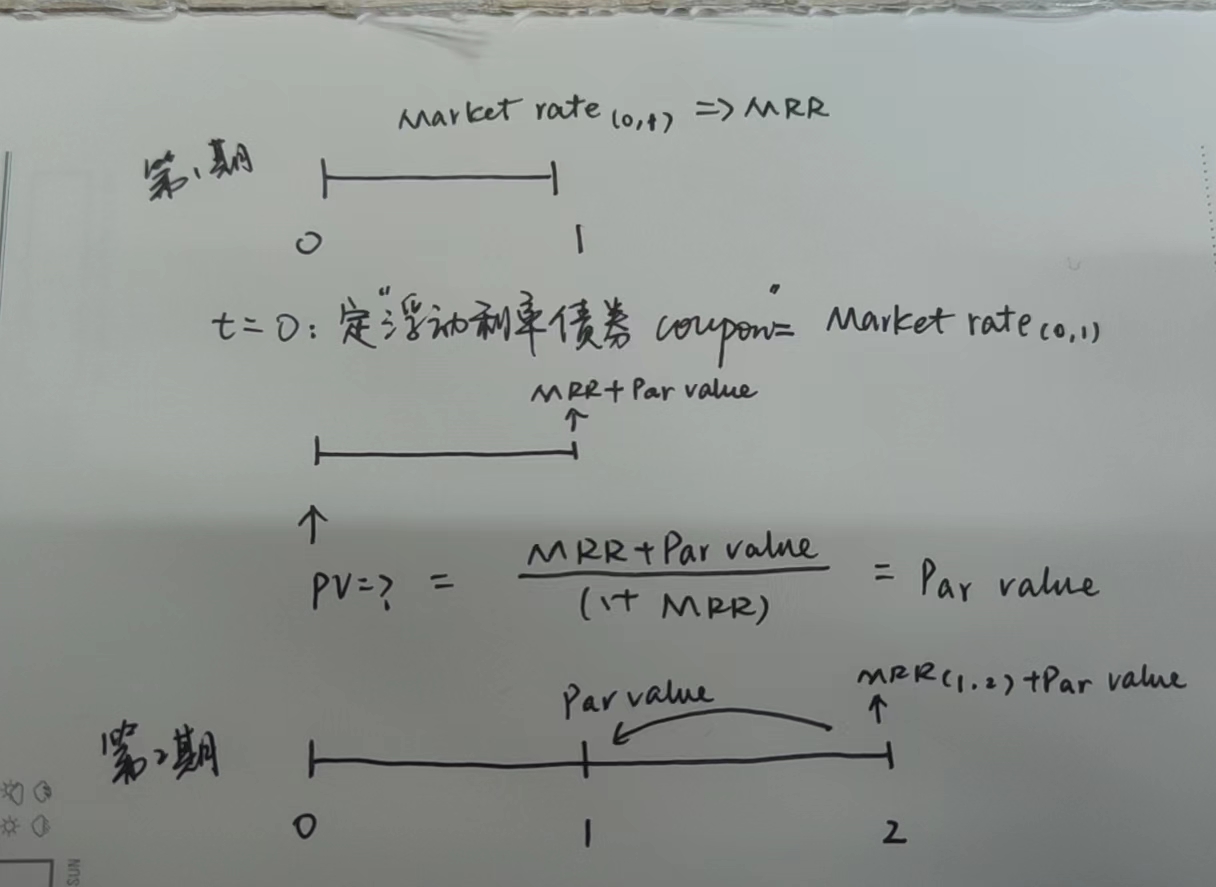 Market rate (0,1) => MRR
第1期
0 1
t=0: 定"浮动利率债券 coupon"= Market rate (0,1)
MRR+Par value
↑
↑
PV=? = MRR+Par value / (1+ MRR) = Par value
Par value MRR(1,2)+Par value
↑
第2期
0 1 2
SUN